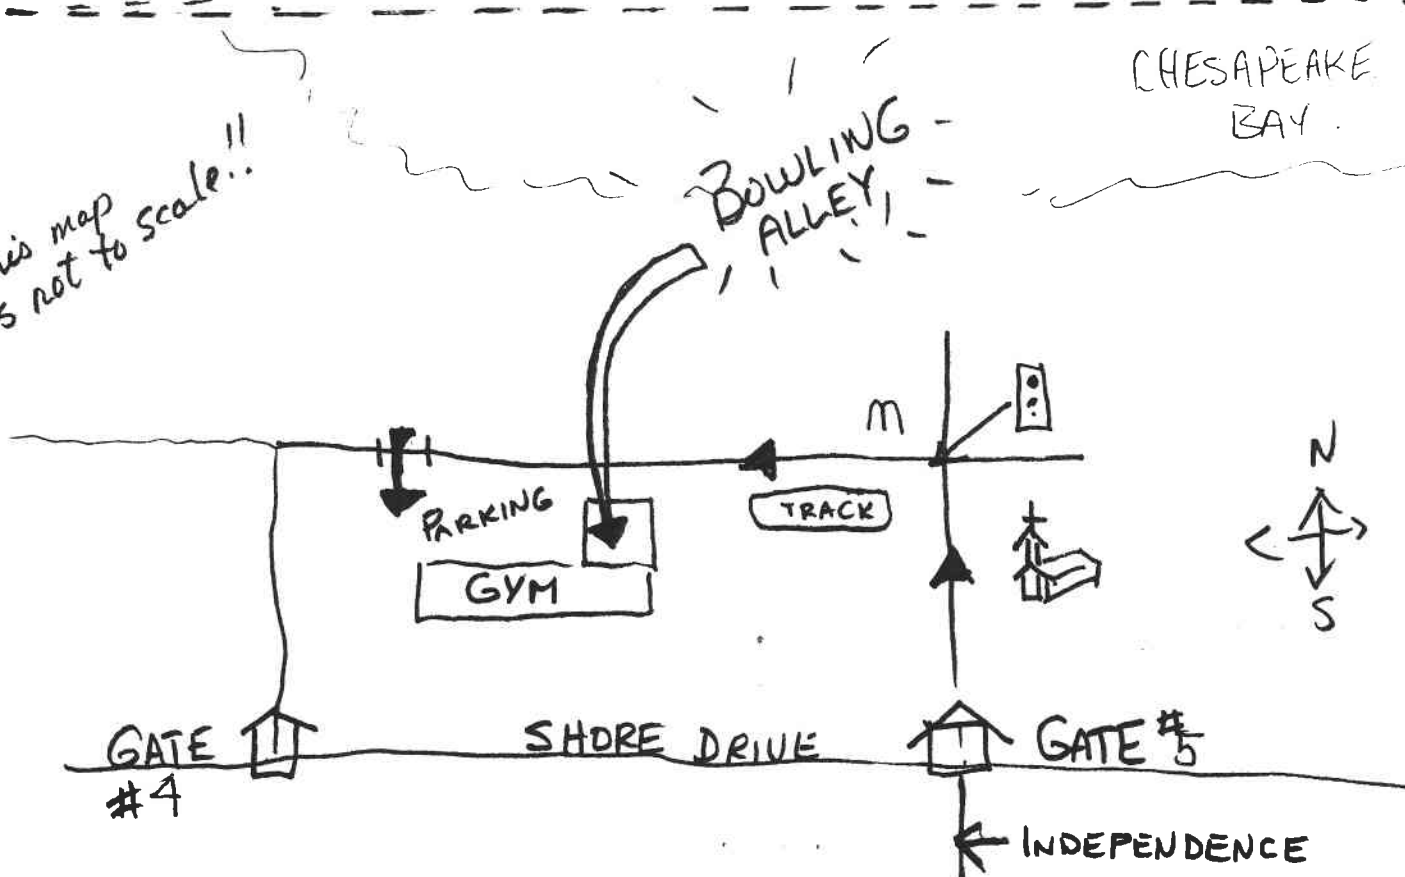 CHESAPEAKE
BAY.
is map
s not to scale!!
BOWLING
ALLEY
M
N
TRACK
PARKING
GYM
S
GATE
#4
SHORE DRIVE
GATE #5
INDEPENDENCE